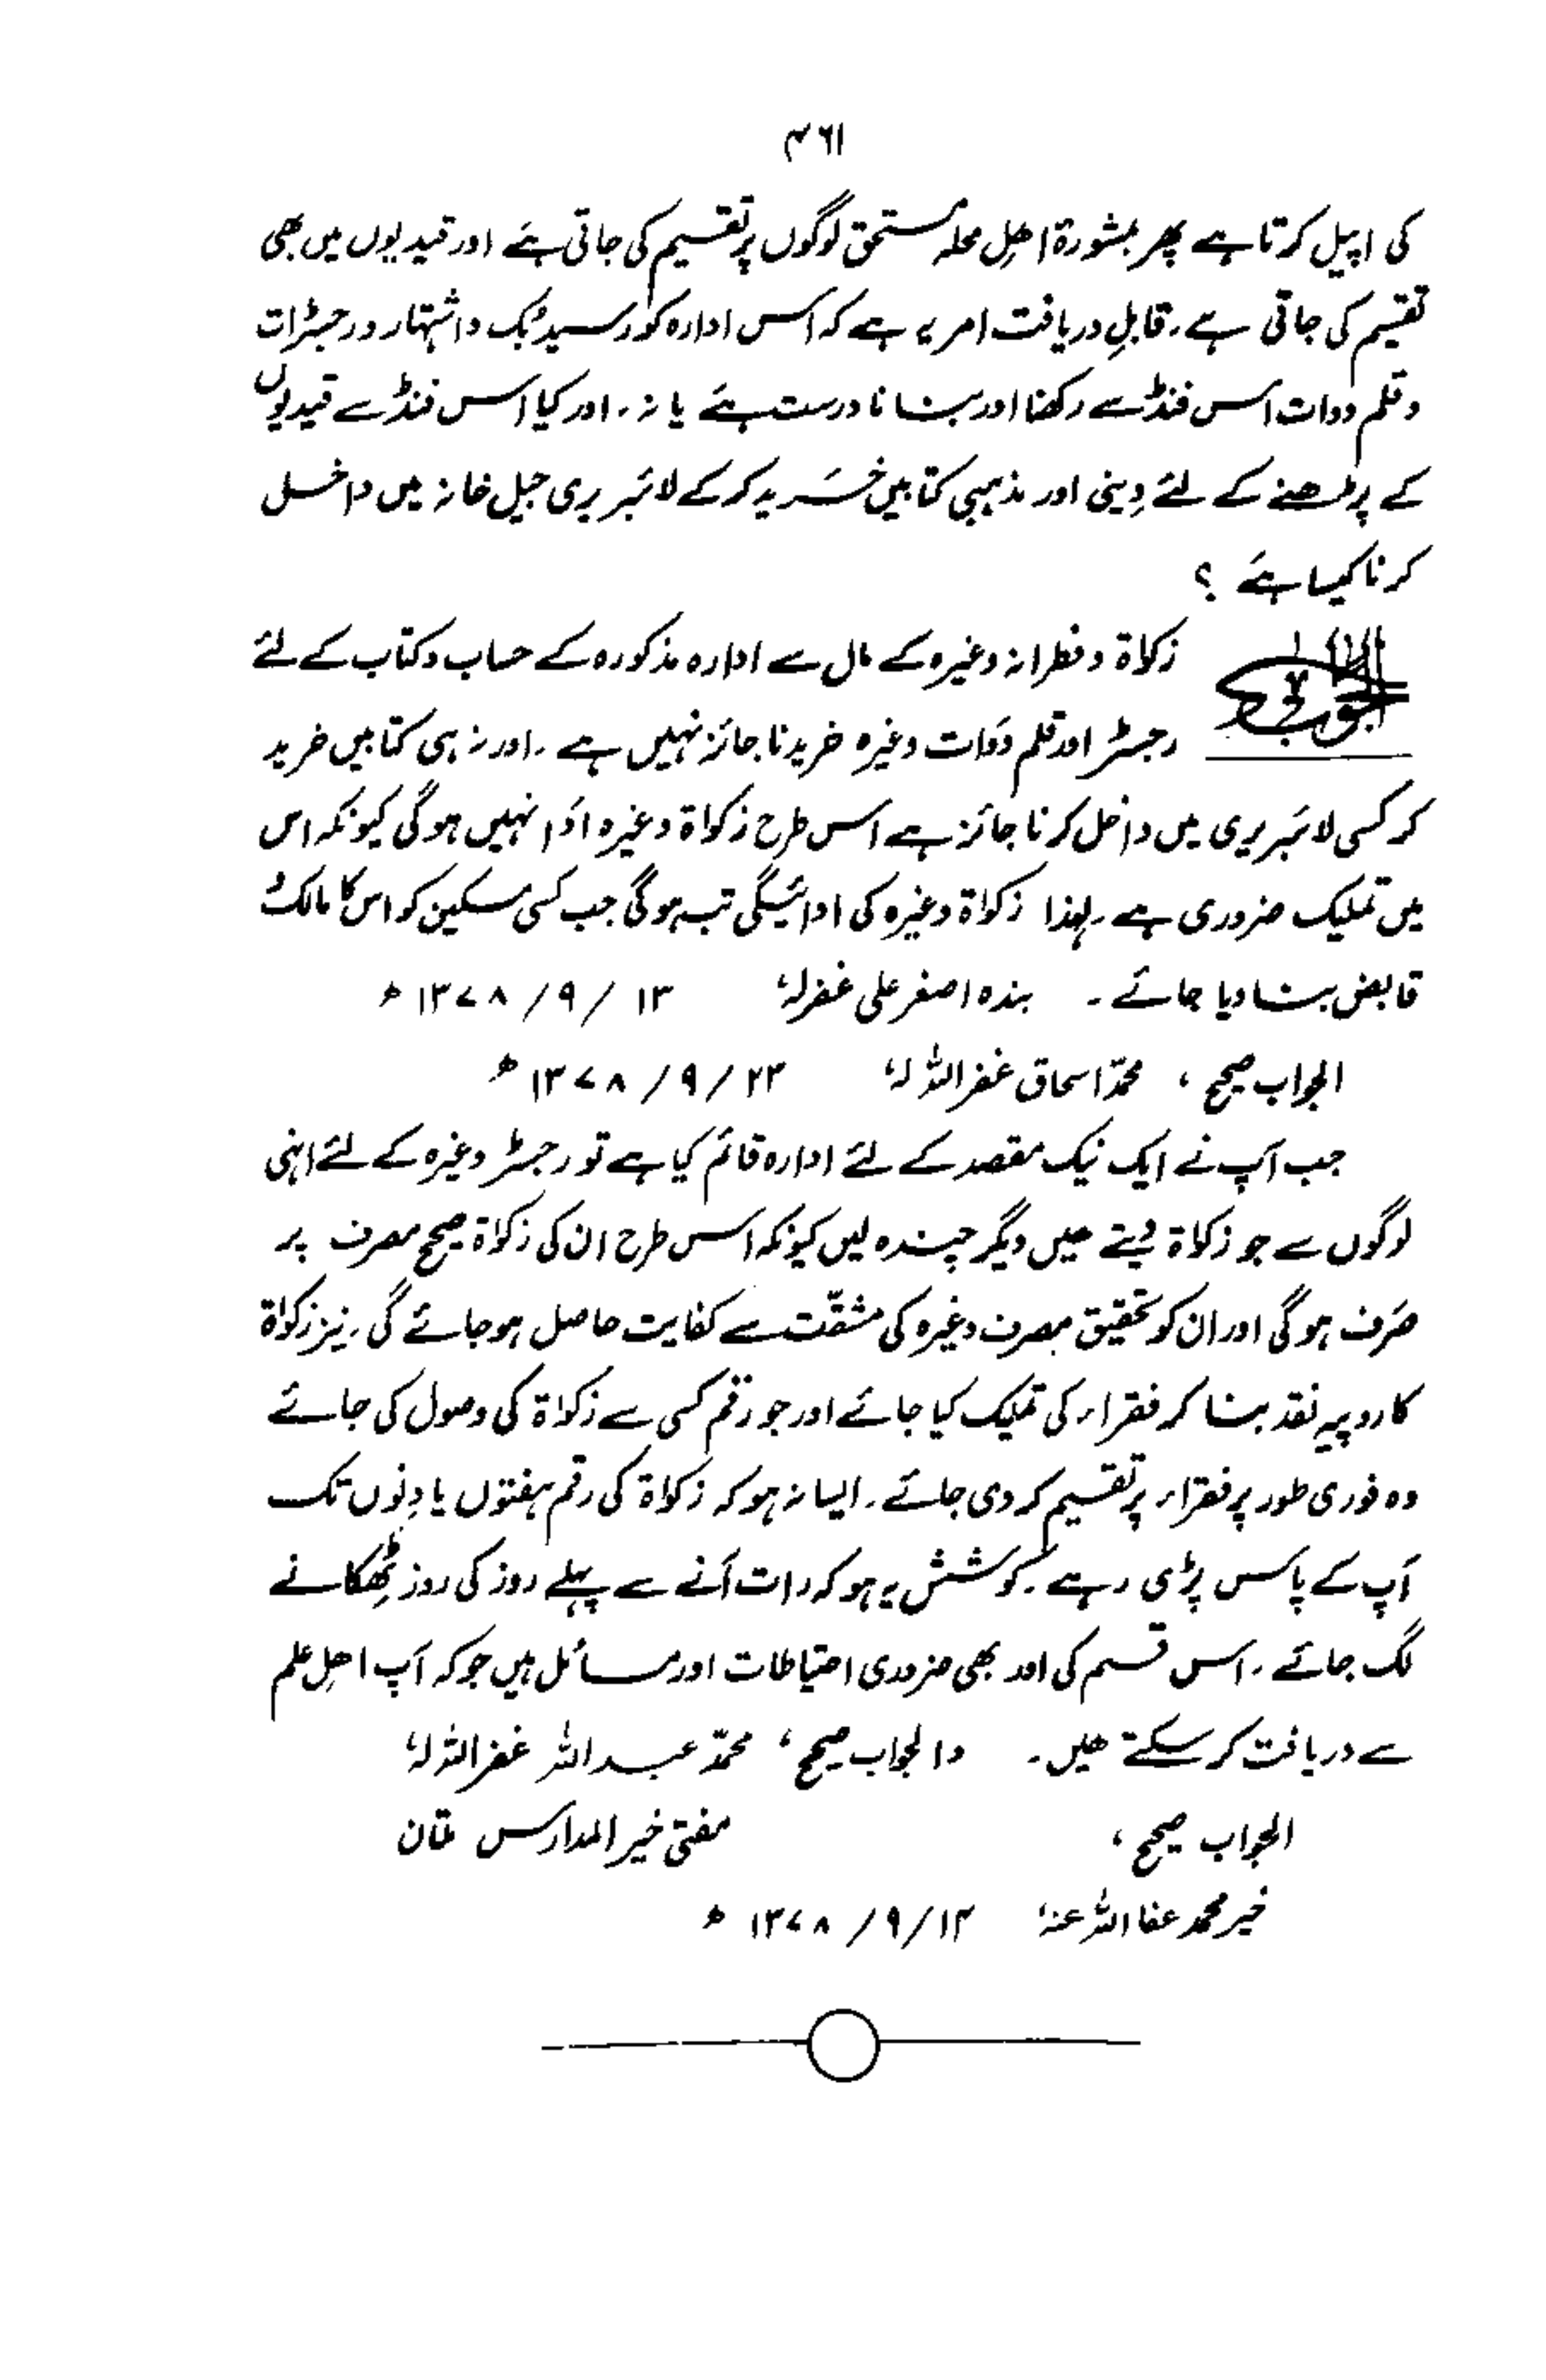 ۴۶۱
کی اپیل کرتا ہے پھر بمشورۃ اھلِ محلہ مستحق لوگوں پر تقسیم کی جاتی ہے اور قیدیوں میں بھی
تقسیم کی جاتی ہے۔ قابلِ دریافت امر یہ ہے کہ اس ادارہ کو رسید بک و اشتہار و رجسڑات
و قلم دوات اس فنڈ سے رکھنا اور بنانا درست ہے یا نہ۔ اور کیا اس فنڈ سے قیدیوں
کے پڑھنے کے لئے دِینی اور مذہبی کتابیں خرید کر کے لائبریری جیل خانہ میں داخل
کرنا کیسا ہے ؟
الجواب زکاۃ و فطرانہ وغیرہ کے مال سے ادارہ مذکورہ کے حساب و کتاب کے لئے
رجسڑ اور قلم دَوات وغیرہ خریدنا جائز نہیں ہے۔ اور نہ ہی کتابیں خرید
کر کسی لائبریری میں داخل کرنا جائز ہے اس طرح زکواۃ وغیرہ ادَا نہیں ہوگی کیونکہ اس
میں تملیک ضروری ہے۔ لہٰذا زکواۃ وغیرہ کی ادائیگی تب ہوگی جب کسی مسکین کو اس کا مالک و
قابض بنا دیا جائے ۔ بندہ اصغر علی غفرلہٗ ۱۳ /۹ /۱۳۷۸ھ
الجواب صحیح ، محمّد اسحاق غفر اللہ لہٗ ۲۳ /۹ /۱۳۷۸ھ
جب آپ نے ایک نیک مقصد کے لئے ادارہ قائم کیا ہے تو رجسڑ وغیرہ کے لئے انہی
لوگوں سے جو زکاۃ دیتے ھیں دیگر چندہ لیں کیونکہ اس طرح ان کی زکاۃ صحیح مصرف پر
صَرف ہوگی اور ان کو تحقیق مصرف وغیرہ کی مشقّت سے کفایت حاصل ہو جائے گی۔ نیز زکواۃ
کا روپیہ نقد بنا کر فقراء کی تملیک کیا جائے اور جو رقم کسی سے زکواۃ کی وصول کی جائے
وہ فوری طور پر فقراء پر تقسیم کر دی جائے۔ ایسا نہ ہو کہ زکواۃ کی رقم ہفتوں یا دِنوں تک
آپ کے پاس پڑی رہے۔ کوشش یہ ہو کہ رات آنے سے پہلے روز کی روز ٹھِکانے
لگ جائے۔ اس قسم کی اور بھی ضروری احتیاطات اور مسائل ہیں جو کہ آپ اھلِ علم
سے دریافت کر سکتے ھیں۔ والجواب صحیح ، محمّد عبد اللہ غفر اللہ لہٗ
الجواب صحیح ، مفتی خیر المدارس ملتان
خیر محمد عفا اللہ عنہٗ ۱۳ /۹ /۱۳۷۸ھ